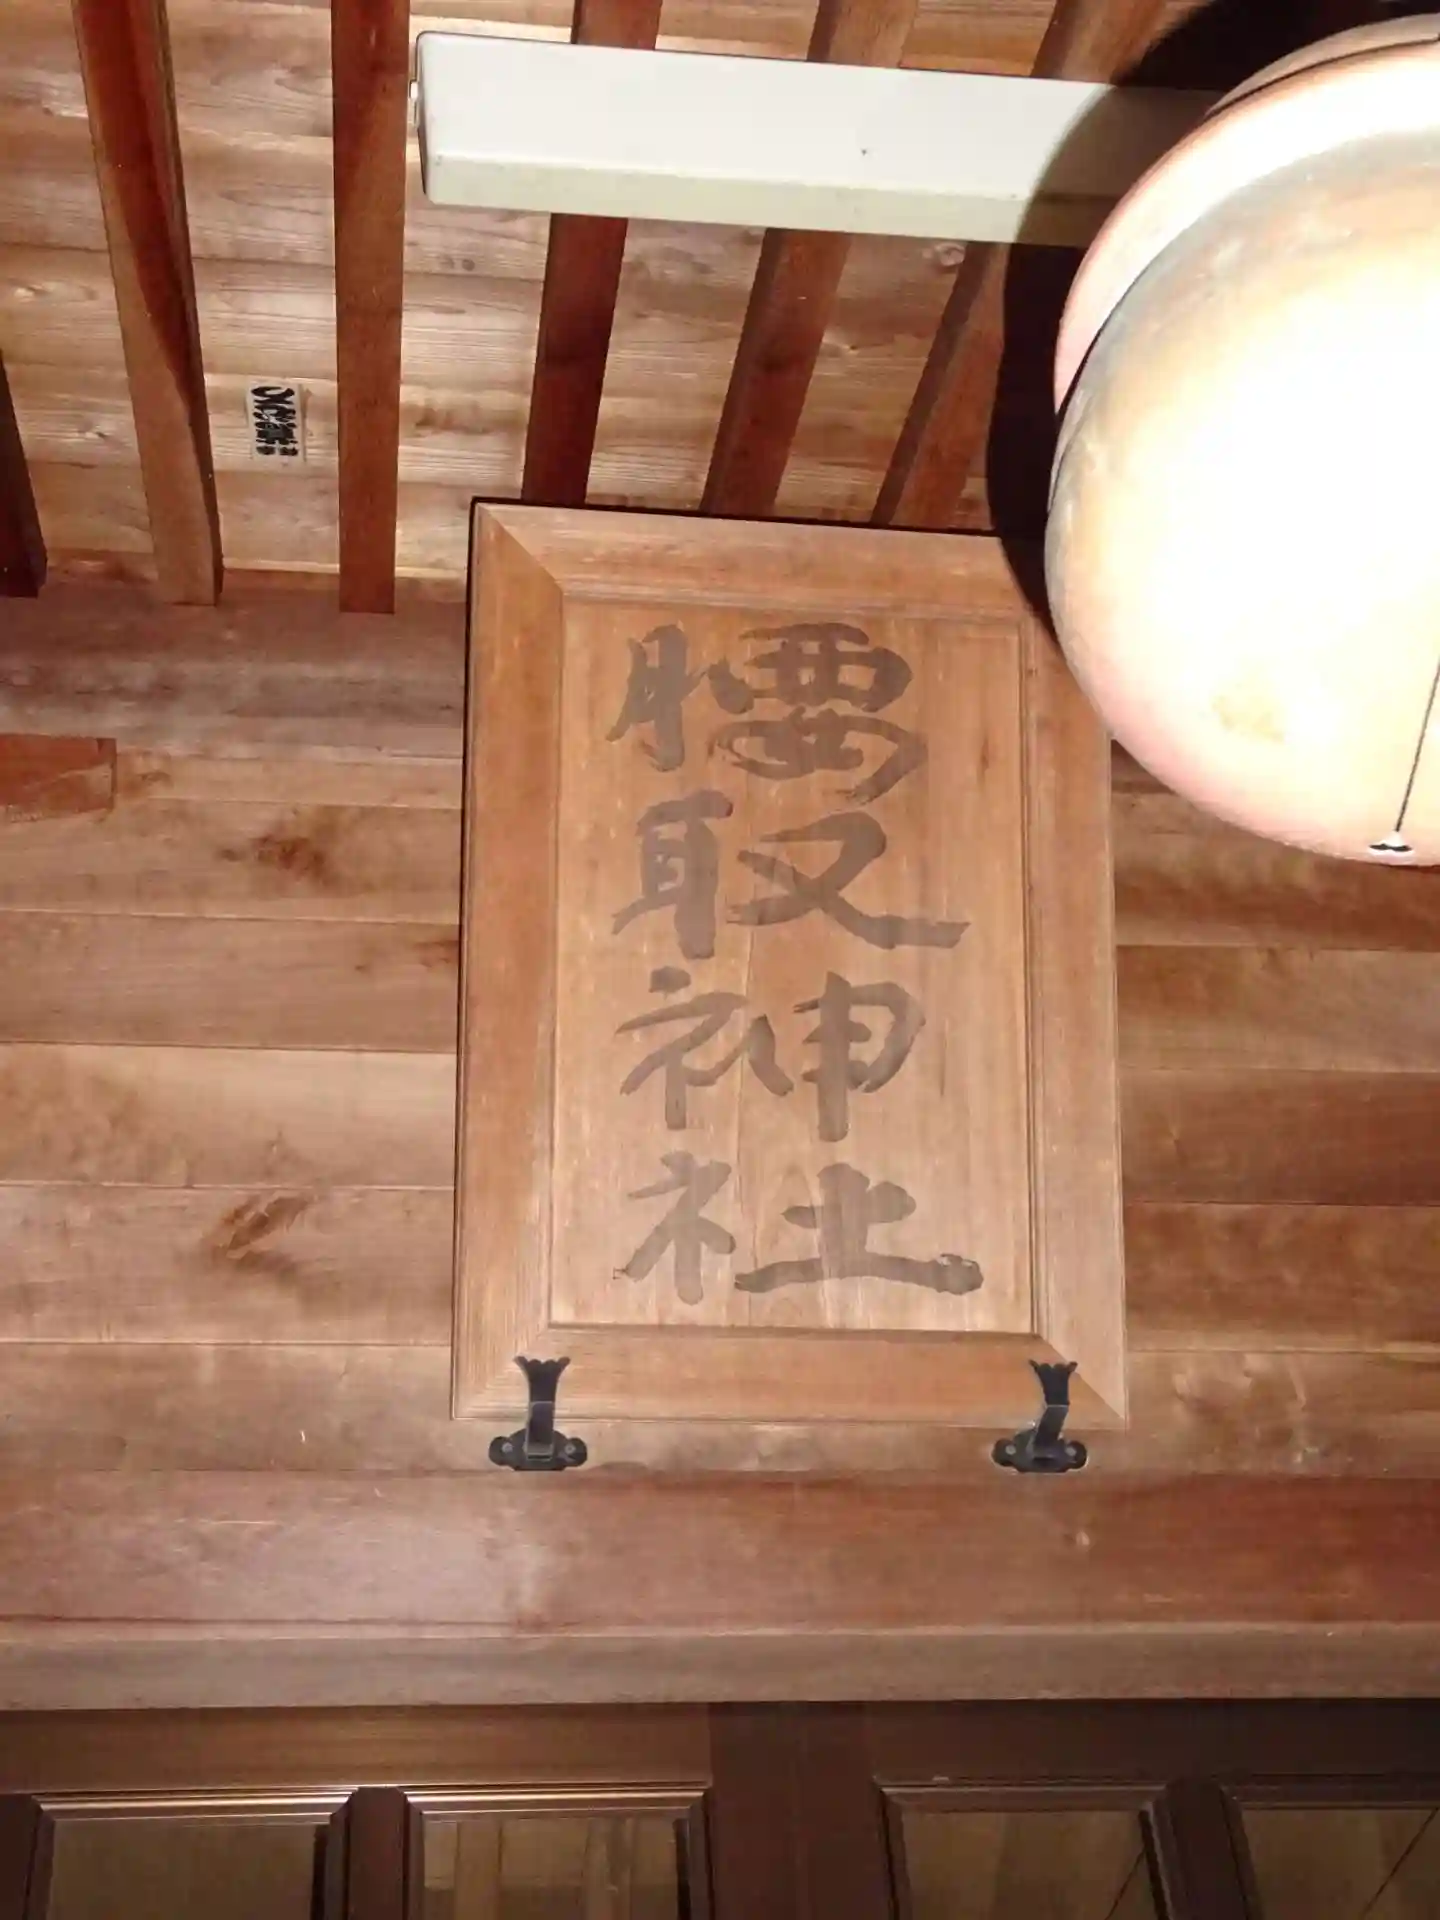 腰取神社